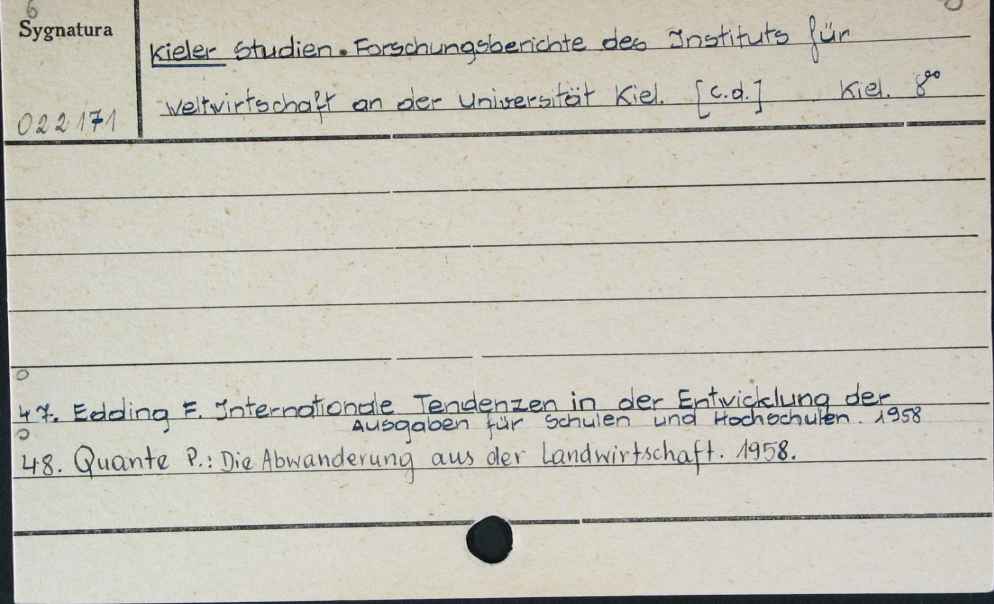 6
Sygnatura
Kieler Studien. Forschungsberichte des Instituts für
Weltwirtschaft an der Universität Kiel. [c.d.] Kiel. 8°°
022171
47. Edding F. Internationale Tendenzen in der Entwicklung der
Ausgaben für Schulen und Hochschulen. 1958
48. Quante P.: Die Abwanderung aus der Landwirtschaft. 1958.